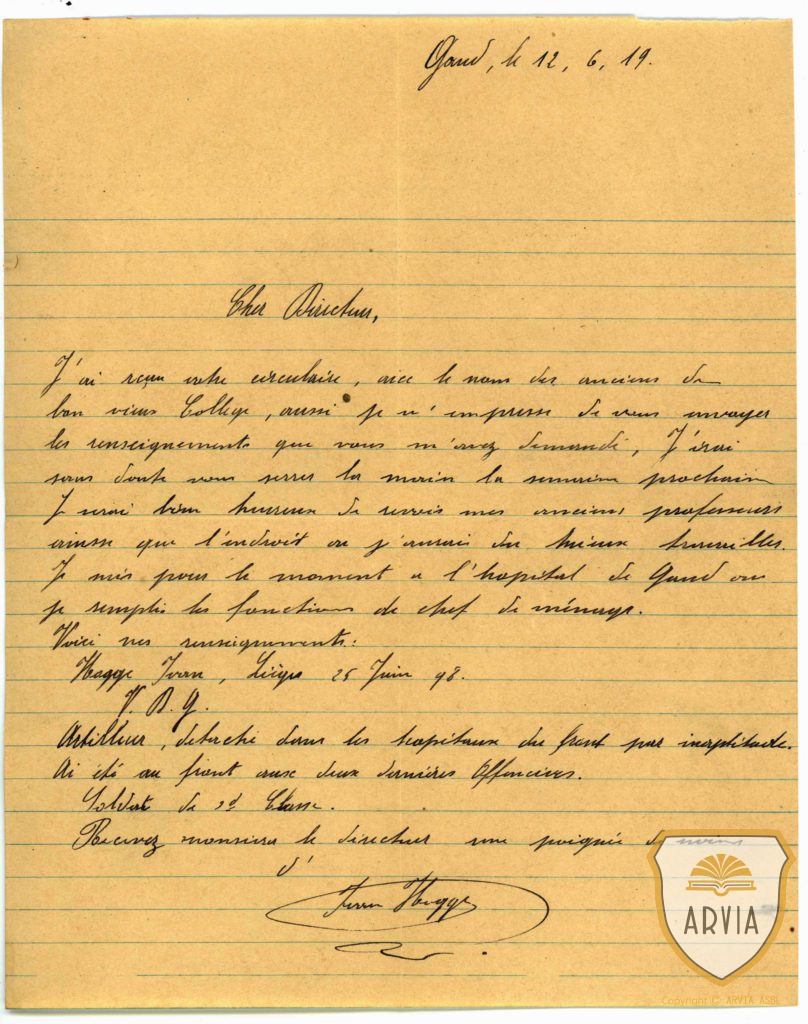 Gand, le 12, 6, 19.
Cher Directeur,
J'ai reçu votre circulaire, avec le nom des anciens du
bon vieux Collège, aussi je m'empresse de vous envoyer
les renseignements que vous m'avez demandé, J'irai
sans doute vous serrer la main la semaine prochain
Je serai bien heureux de revoir mes anciens professeurs
ainsi que l'endroit ou j'aurais du mieux travailler.
Je suis pour le moment a l'hopital de Gand ou
je remplis les fonctions de chef de ménage.
Voici mes renseignements:
Hogge Ivan, Liège 25 Juin 98.
V. D. G.
Artilleur, détaché dans les hopitaux du front par inaptitude.
Ai été au front aux deux dernières Offencives.
Soldat de 2d Classe.
Recevez monsieur le directeur une poignée de mains
d'
Ivan Hogge
ARVIA
Copyright © ARVIA ASBL